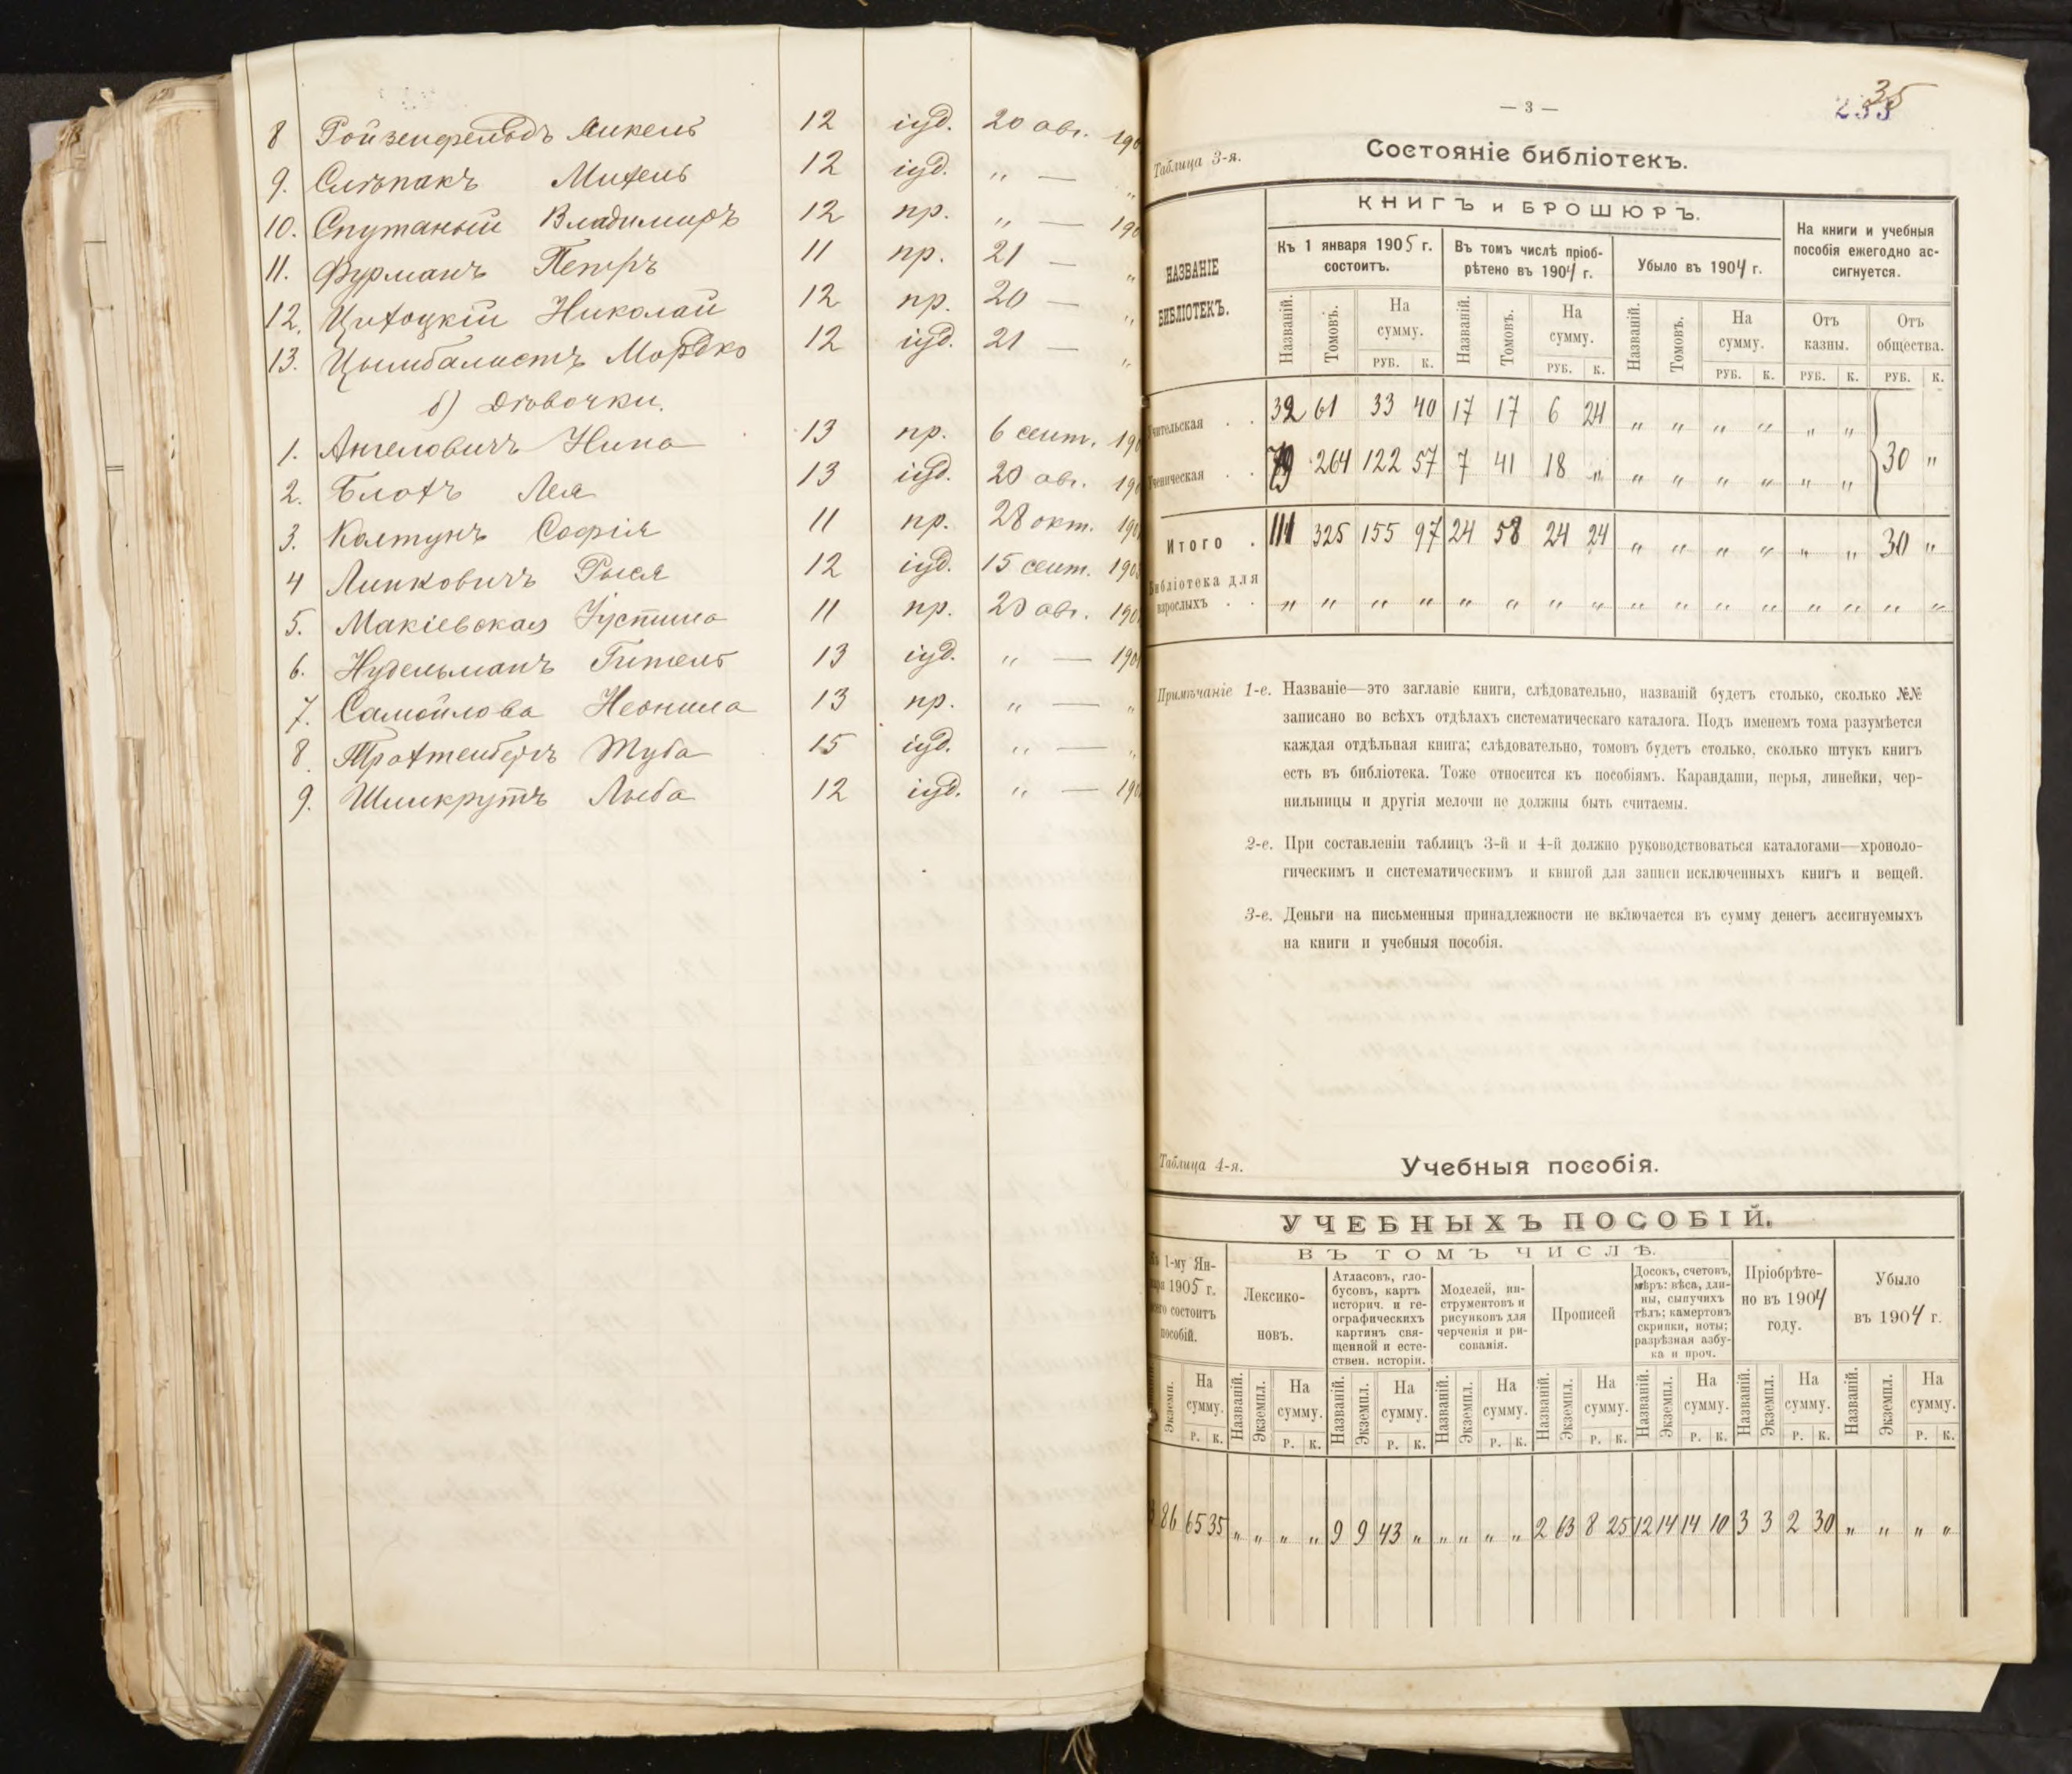 8 Ройзенфельдъ Микель 12 іуд. 20 авг. 190
9. Слѣпакъ Михель 12 іуд. „ — „
10. Спутаный Владимиръ 12 пр. „ — 190
11. Фурманъ Петръ 11 пр. 21 — „
12. Цихоцкій Николай 12 пр. 20 — „
13. Цымбалистъ Мордко 12 іуд. 21 — „
б) Дѣвочки.
1. Ангеловичъ Нина 13 пр. 6 сент. 190
2. Блохъ Лея 13 іуд. 20 авг. 190
3. Колтунъ Софія 11 пр. 28 окт. 190
4 Липковичъ Рыся 12 іуд. 15 сент. 190
5. Макіевская Іустина 11 пр. 20 авг. 190
6. Нудельманъ Гитель 13 іуд. „ — 190
7. Самойлова Неонила 13 пр. „ — „
8. Трахтенбергъ Туба 15 іуд. „ — „
9. Шмикрутъ Люба 12 іуд. „ — 190
— 3 —
35
233
Таблица 3-я.
Состояніе библіотекъ.
НАЗВАНІЕ БИБЛІОТЕКЪ.
КНИГЪ и БРОШЮРЪ.
На книги и учебныя пособія ежегодно ассигнуется.
Къ 1 января 1905 г. состоитъ.
Въ томъ числѣ пріобрѣтено въ 1904 г.
Убыло въ 1904 г.
Названій. Томовъ. На сумму. Названій. Томовъ. На сумму. Названій. Томовъ. На сумму. Отъ казны. Отъ общества.
РУБ. К. РУБ. К. РУБ. К. РУБ. К. РУБ. К.
Учительская . . 32 61 33 40 17 17 6 24 „ „ „ „ „ „
Ученическая . . 79 264 122 57 7 41 18 „ „ „ „ „ „ „ 30 „
Итого . 111 325 155 97 24 58 24 24 „ „ „ „ „ „ 30 „
Библіотека для
взрослыхъ . . „ „ „ „ „ „ „ „ „ „ „ „ „ „ „ „
Примѣчаніе 1-е. Названіе—это заглавіе книги, слѣдовательно, названій будетъ столько, сколько №№
записано во всѣхъ отдѣлахъ систематическаго каталога. Подъ именемъ тома разумѣется
каждая отдѣльная книга; слѣдовательно, томовъ будетъ столько, сколько штукъ книгъ
есть въ библіотека. Тоже относится къ пособіямъ. Карандаши, перья, линейки, чер-
нильницы и другія мелочи не должны быть считаемы.
2-е. При составленіи таблицъ 3-й и 4-й должно руководствоваться каталогами—хроноло-
гическимъ и систематическимъ и книгой для записи исключенныхъ книгъ и вещей.
3-е. Деньги на письменныя принадлежности не включается въ сумму денегъ ассигнуемыхъ
на книги и учебныя пособія.
Таблица 4-я.
Учебныя пособія.
УЧЕБНЫХЪ ПОСОБІЙ.
Къ 1-му Января 1905 г. всего состоитъ пособій.
ВЪ ТОМЪ ЧИСЛѢ.
Лексиконовъ.
Атласовъ, глобусовъ, картъ историч. и географическихъ картинъ священной и естествен. исторіи.
Моделей, инструментовъ и рисунковъ для черченія и рисованія.
Прописей
Досокъ, счетовъ, мѣръ: вѣса, длины, сыпучихъ тѣлъ; камертонъ скрипки, ноты; разрѣзная азбука и проч.
Пріобрѣтено въ 1904 году.
Убыло въ 1904 г.
Экземп. На сумму. Названій. Экземпл. На сумму. Названій. Экземпл. На сумму. Названій. Экземпл. На сумму. Названій. Экземпл. На сумму. Названій. Экземпл. На сумму. Названій. Экземпл. На сумму. Названій. Экземпл. На сумму.
Р. К. Р. К. Р. К. Р. К. Р. К. Р. К. Р. К. Р. К.
86 65 35 „ „ „ „ 9 9 43 „ „ „ „ „ 2 63 8 25 12 14 14 10 3 3 2 30 „ „ „ „